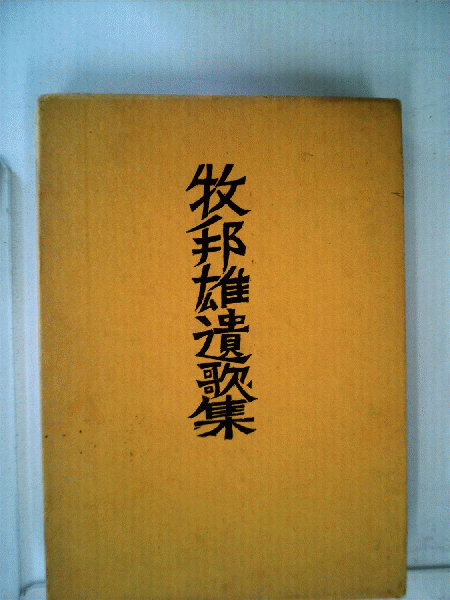 牧邦雄遺歌集